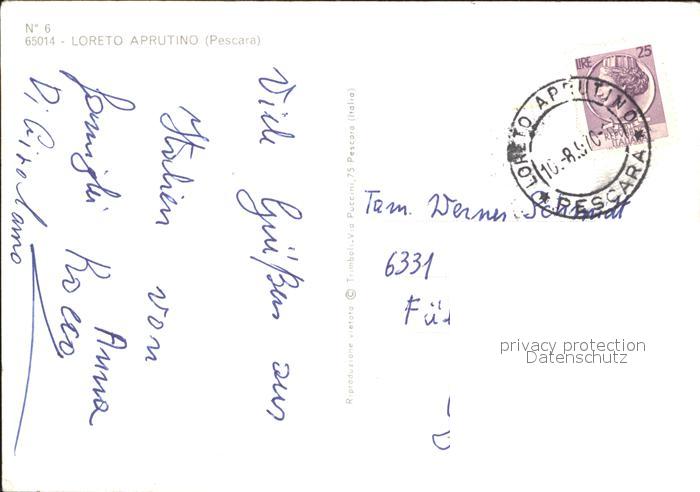 N° 6
65014 - LORETO APRUTINO (Pescara)
Viele Grüßen aus
Italien von
Famiglia Rocco Anna
Di Girolamo
Riproduzione vietata © Trimboli-Via Puccini, 75 Pescara (Italia)
LIRE 25
LORETO APRUTINO
PESCARA
Fam. Werner Schmidt
6331
privacy protection
Datenschutz